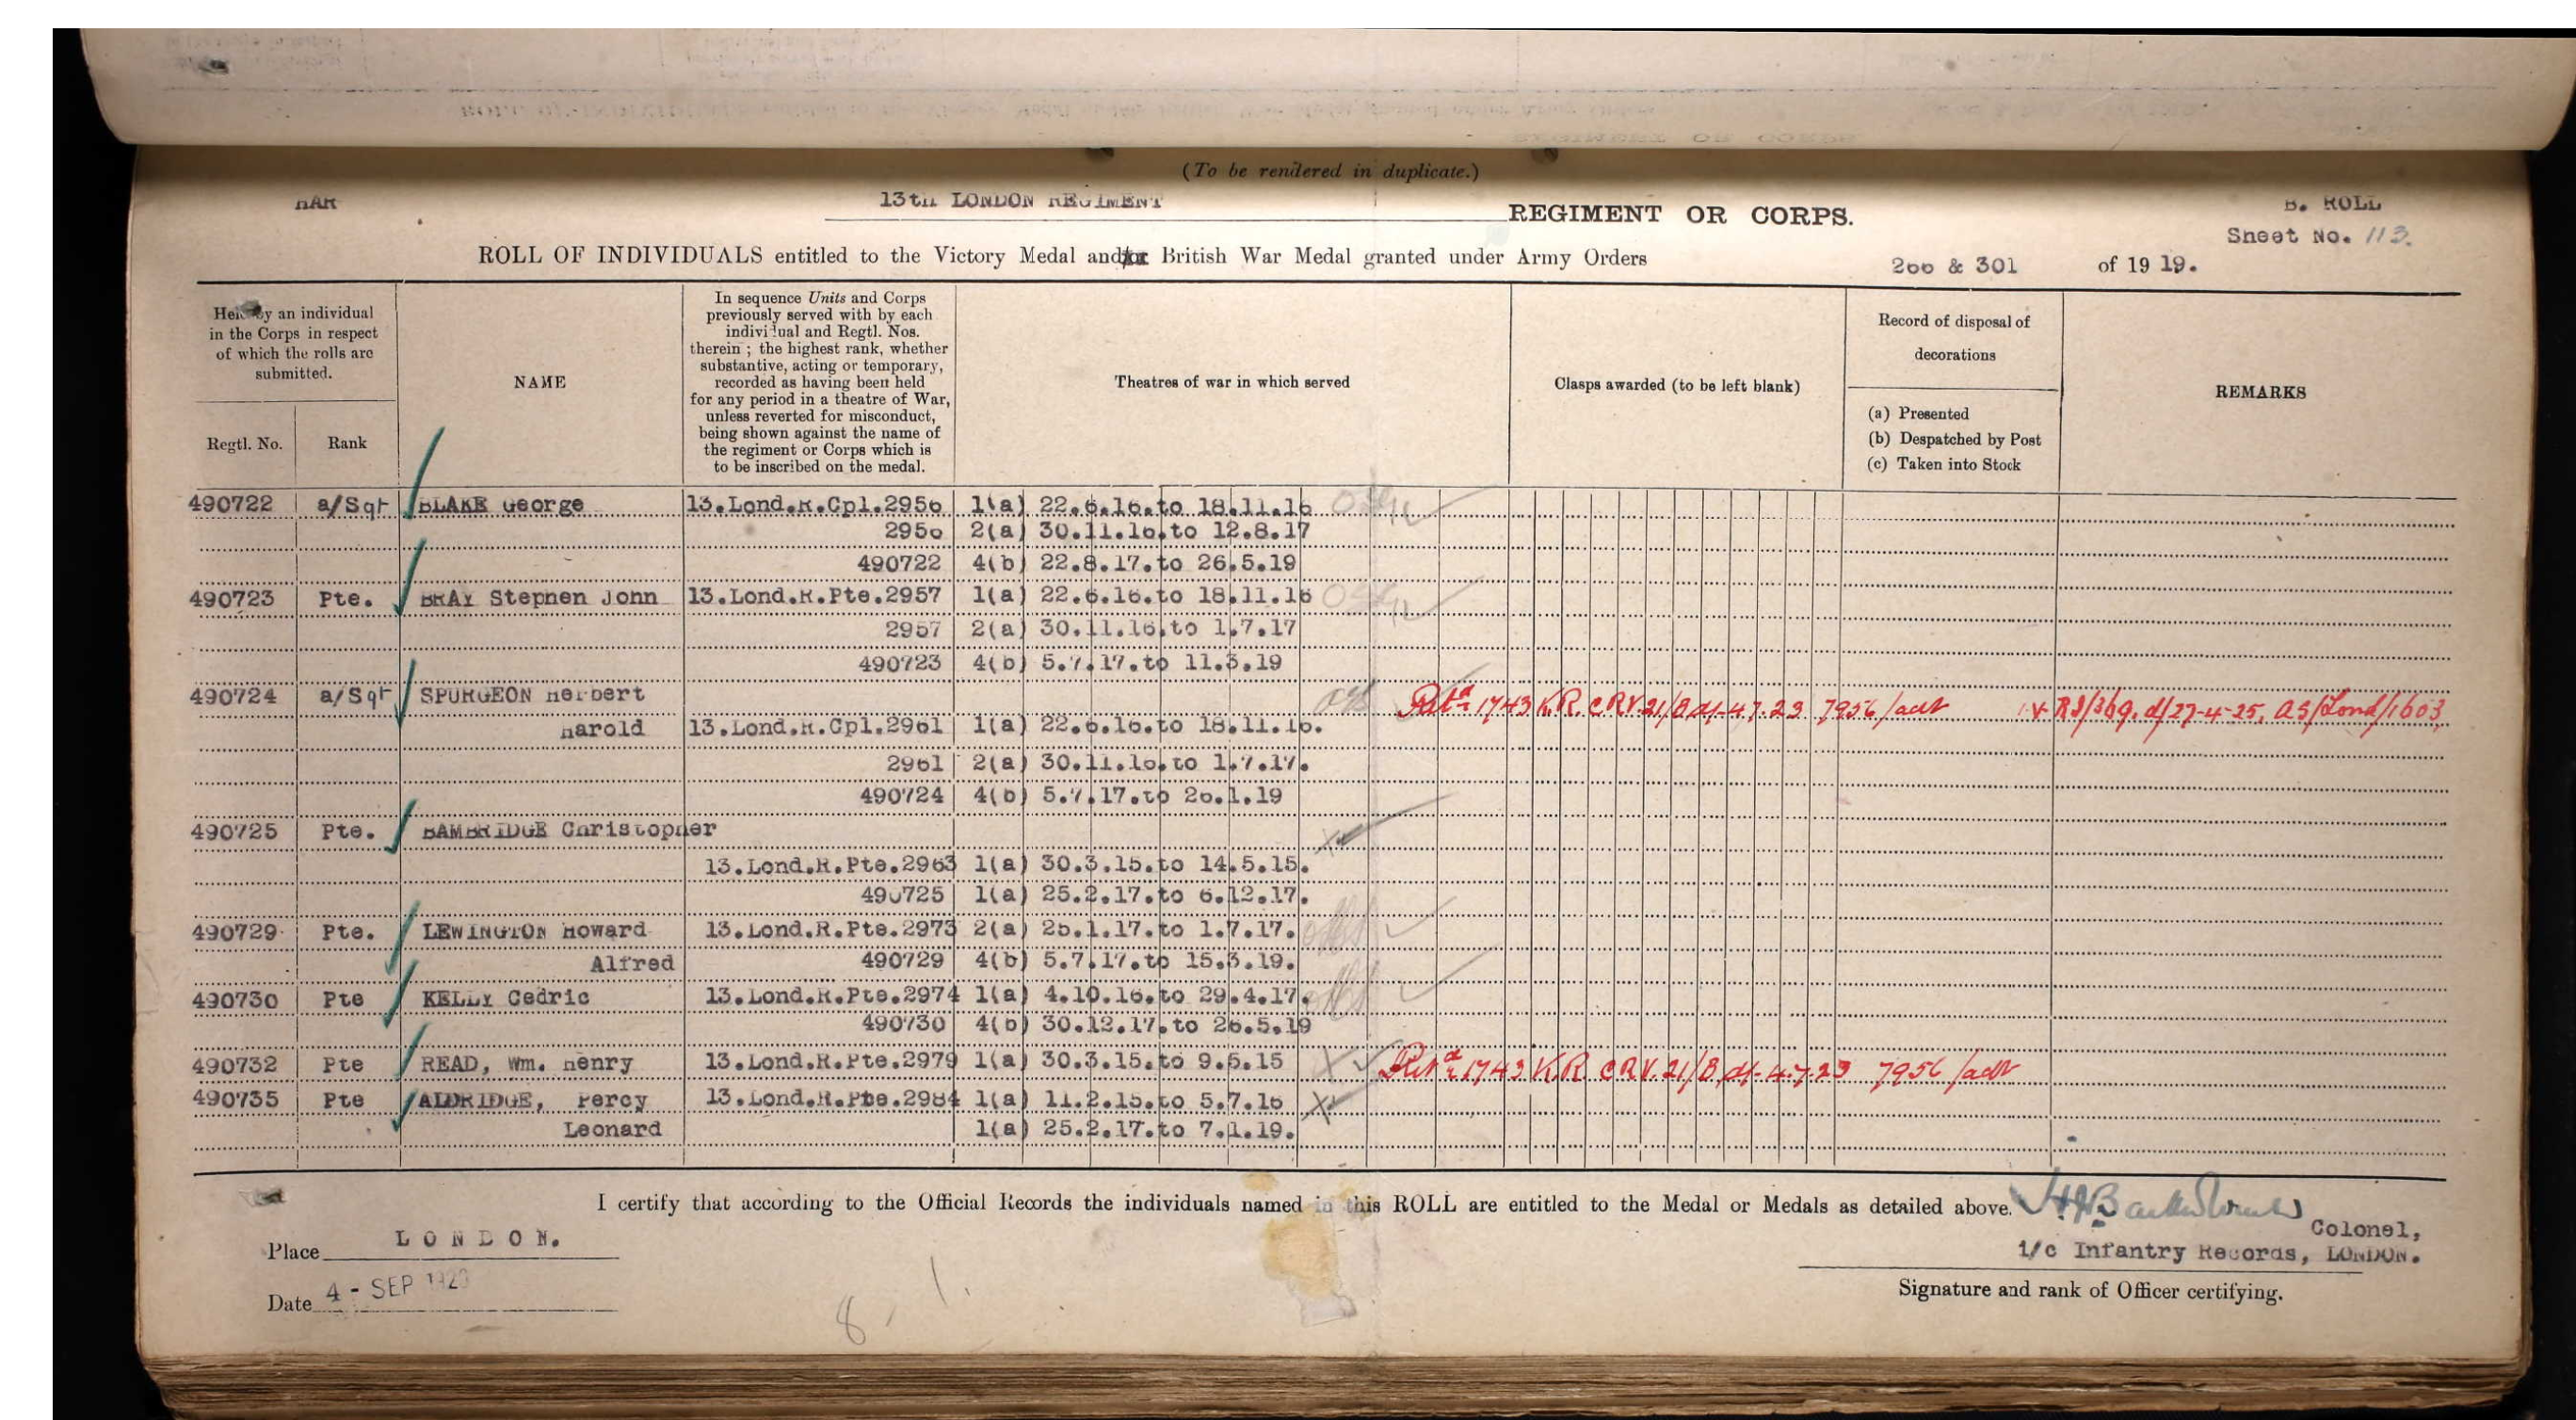 (To be rendered in duplicate.)
HAR 13th LONDON REGIMENT REGIMENT OR CORPS. B. ROLL
Sheet No. 113.
ROLL OF INDIVIDUALS entitled to the Victory Medal and/or British War Medal granted under Army Orders 266 & 301 of 19 19.
Held by an individual in the Corps in respect of which the rolls are submitted.
Regtl. No.
Rank
NAME
In sequence Units and Corps
previously served with by each
individual and Regtl. Nos.
therein ; the highest rank, whether
substantive, acting or temporary,
recorded as having been held
for any period in a theatre of War,
unless reverted for misconduct,
being shown against the name of
the regiment or Corps which is
to be inscribed on the medal.
Theatres of war in which served
Clasps awarded (to be left blank)
Record of disposal of
decorations
(a) Presented
(b) Despatched by Post
(c) Taken into Stock
REMARKS
490722 a/Sgt BLAKE George 13.Lond.R.Cpl.2956 1(a) 22.6.16.to 18.11.16
2956 2(a) 30.11.16.to 12.8.17
490722 4(b) 22.8.17.to 26.5.19
490723 Pte. BRAY Stephen John 13.Lond.R.Pte.2957 1(a) 22.6.16.to 18.11.16
2957 2(a) 30.11.16.to 1.7.17
490723 4(b) 5.7.17.to 11.3.19
490724 a/Sgt SPURGEON Herbert 1743 K.R. C.R.V. 21/B d/- 4.7.23 7956/adt V. RS/369. d/27-4-25, AS/Lond/1603
Harold 13.Lond.R.Cpl.2961 1(a) 22.6.16.to 18.11.16.
2961 2(a) 30.11.16.to 1.7.17.
490724 4(b) 5.7.17.to 26.1.19
490725 Pte. BAMBRIDGE Christopher
13.Lond.R.Pte.2963 1(a) 30.3.15.to 14.5.15.
490725 1(a) 25.2.17.to 6.12.17.
490729 Pte. LEWINGTON Howard 13.Lond.R.Pte.2973 2(a) 25.1.17.to 1.7.17.
Alfred 490729 4(b) 5.7.17.to 15.3.19.
490730 Pte KELLY Cedric 13.Lond.R.Pte.2974 1(a) 4.10.16.to 29.4.17.
490730 4(b) 30.12.17.to 26.5.19
490732 Pte READ, Wm. Henry 13.Lond.R.Pte.2979 1(a) 30.3.15.to 9.5.15 1743 K.R. C.R.V. 21/B d/- 4.7.23 7956/adt
490735 Pte ALDRIDGE, Percy 13.Lond.R.Pte.2984 1(a) 11.2.15.to 5.7.16
Leonard 1(a) 25.2.17.to 7.1.19.
I certify that according to the Official Records the individuals named in this ROLL are entitled to the Medal or Medals as detailed above.
Place LONDON.
Colonel,
i/c Infantry Records, LONDON.
Date 4 - SEP 1920
Signature and rank of Officer certifying.
8, 1.